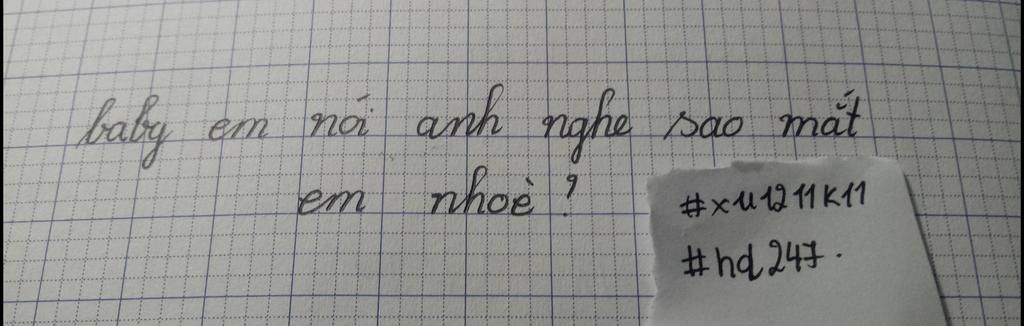 baby em nói anh nghe sao mắt
em nhoè?
#xu1211k11
#hd247.